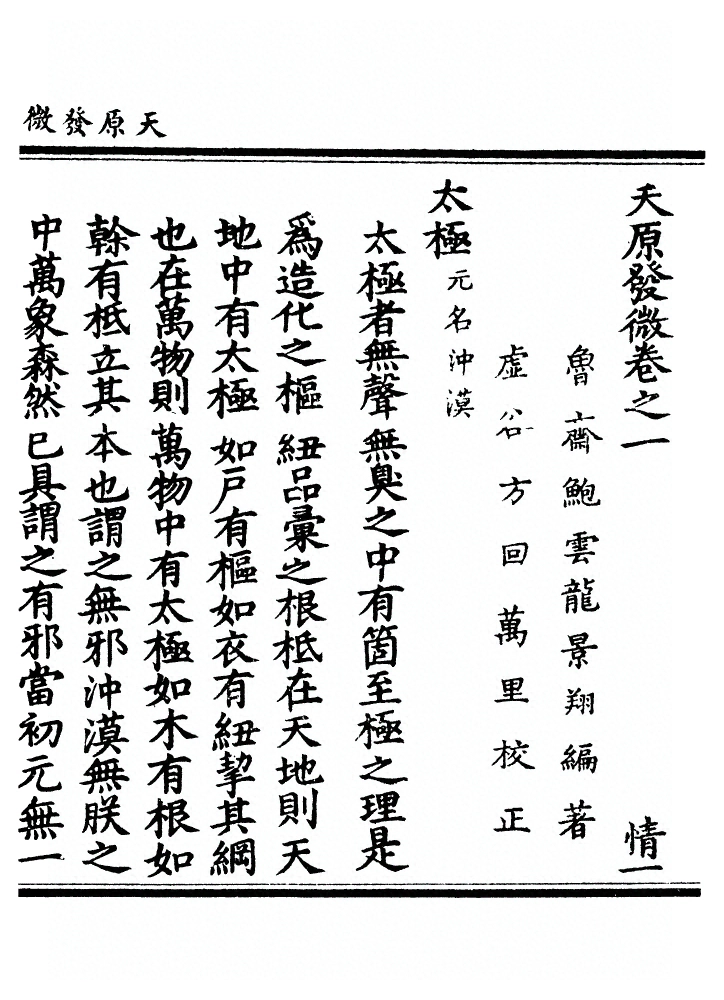 天原發微
天原發微卷之一 情一
魯齋鮑雲龍景翔編著
虛谷方回萬里校正
太極元名沖漠
太極者無聲無臭之中有箇至極之理是
爲造化之樞紐品彙之根柢在天地則天
地中有太極如戶有樞如衣有紐挈其綱
也在萬物則萬物中有太極如木有根如
榦有柢立其本也謂之無邪沖漠無朕之
中萬象森然已具謂之有邪當初元無一